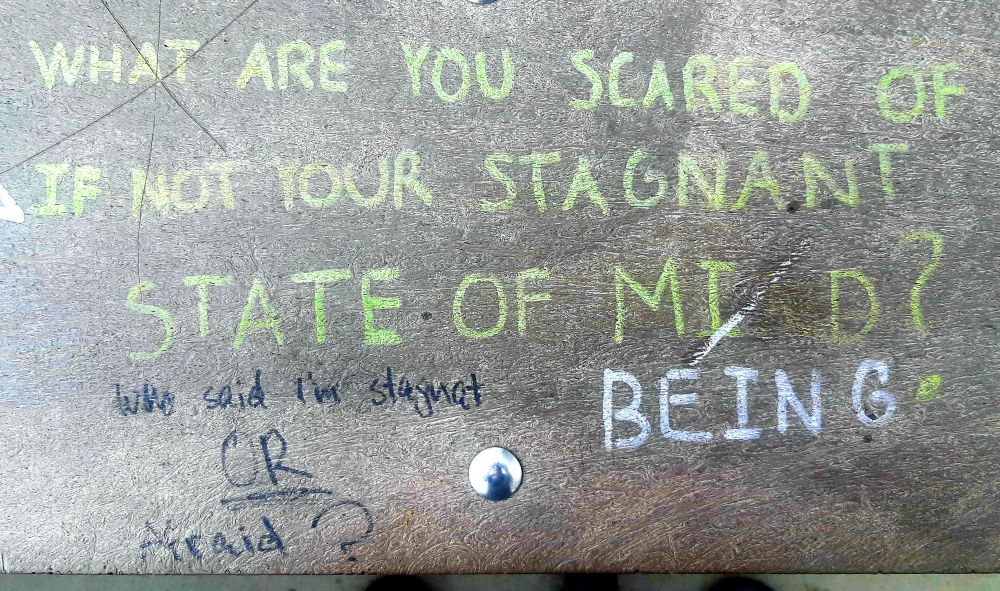 WHAT ARE YOU SCARED OF
IF NOT YOUR STAGNANT
STATE OF MIND?
BEING
who said I'm stagnat
OR
Afraid?